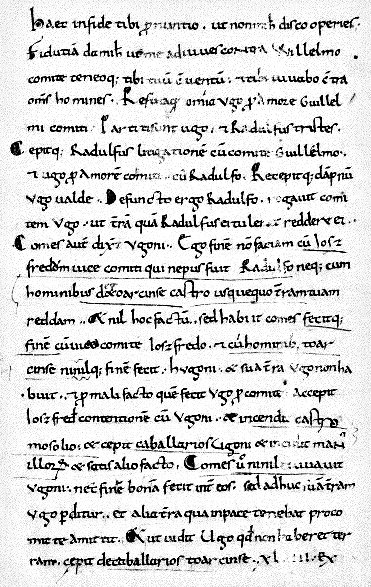 Haec in fide tibi p nuntio . ut non mih discoperies .
Fidutiā da mih ut me adiuves contra Willelmo
comite teneoq; tibi tuū c̄ventū . & tibi iuvabo c̄tra
om̄s homines . omīa Ugo p amore Guillel
mi comiti . Partiti sunt ugo . & Radulfus tristes .
Cepitq; Radulfus litigationē cū comite Guillelmo .
& ugo p amorē comiti . cū Radulfo . Recepitq; dāpnū
Ugo valde . Defuncto ergo Radulfo . rogavit comi
tem Ugo . ut t̄rā quā Radulfus ei tulerat . redderet ei .
Comes autē dix̄ Ugoni . Ego finē nō faciam cū Iosz
fredo vice comiti qui nepus fuit Radulfo neq; cum
hominibus de toarcinse castro usquequo t̄ram tuam
reddam . nil hoc factū . sed habiit comes fecitq;
finē cū vice comite Ioszfredo . & cū hominib; toar
cinse nihilq; finē fecit . hugoni . & sua t̄ra Ugo non ha
buit . & p malifacto quē fecit Ugo p comite accepit
Ioszfred contentionē cū Ugoni . & incendit castro
mosolio . & cepit caballarios Ugoni &
illorū & satis alio facto . Comes nihil iuvavit
Ugoni . nec finē bonā fecit int̄ eos . sed adhuc t̄ram
Ugo p ditur . et alia t̄ra quā in pace tenebat p co
mite amittit . Ut vidit Ugo qd non haberet ter
ram . cepit de caballarios toarcinse . XL